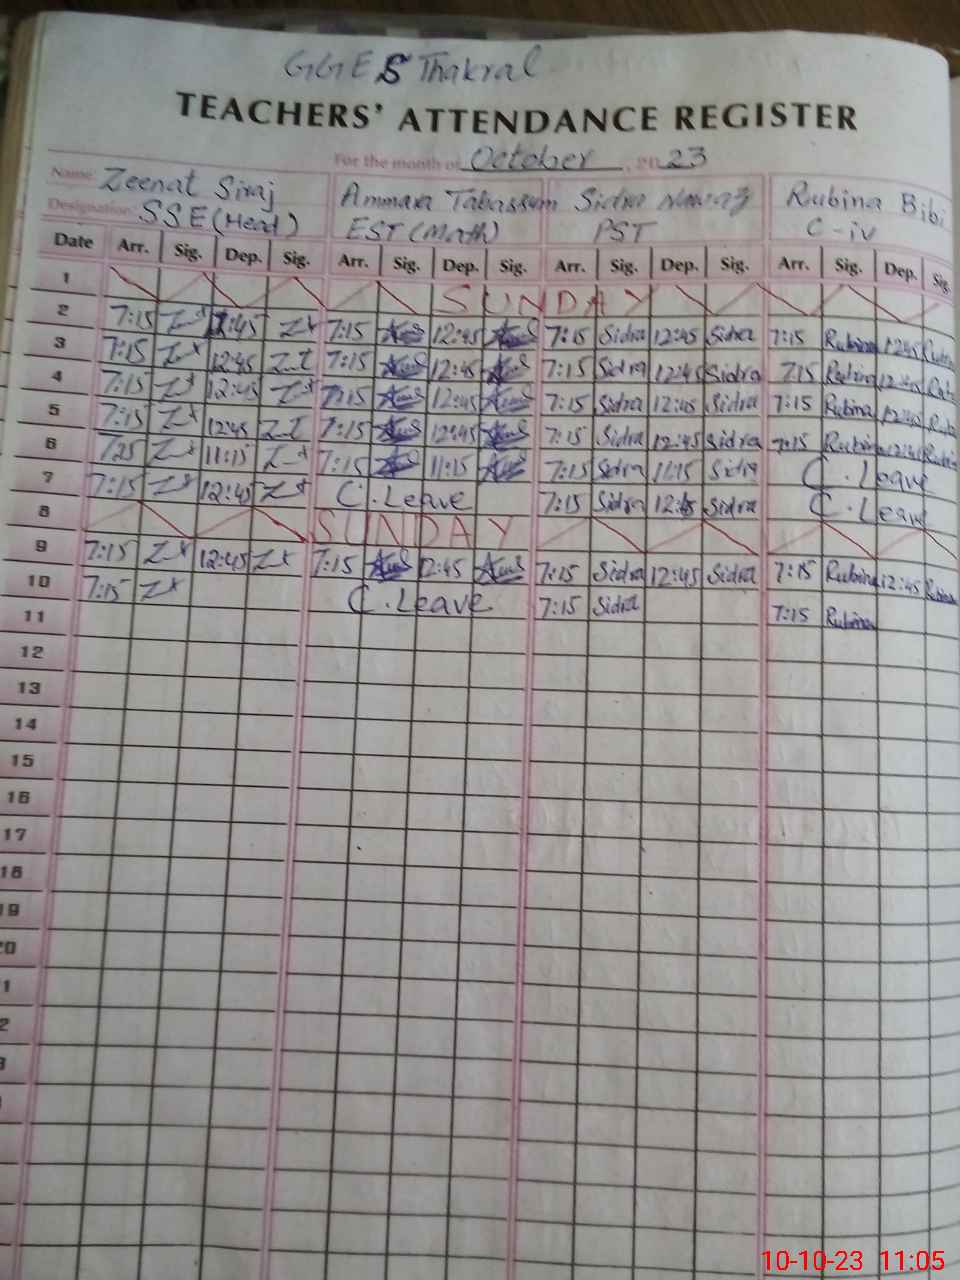 GGES Thakral
TEACHERS' ATTENDANCE REGISTER
For the month of October, 2023
Name Zeenat Siraj Ammara Tabassum Sidra Nawaz Rubina Bibi
Designation SSE (Head) EST (Math) PST C-iv
Date Arr. Sig. Dep. Sig. Arr. Sig. Dep. Sig. Arr. Sig. Dep. Sig. Arr. Sig. Dep. Sig.
1 SUNDAY
2 7:15 12:45 7:15 12:45 7:15 Sidra 12:45 Sidra 7:15 Rubina 12:45
3 7:15 12:45 7:15 12:45 7:15 Sidra 12:45 Sidra 7:15 Rubina 12:45
4 7:15 12:45 7:15 12:45 7:15 Sidra 12:45 Sidra 7:15 Rubina 12:45
5 7:15 12:45 7:15 12:45 7:15 Sidra 12:45 Sidra 7:15 Rubina
6 11:15 7:15 11:15 7:15 Sidra 11:15 Sidra C.Leave
7 7:15 12:45 C.Leave 7:15 Sidra 12:45 Sidra C.Leave
8 SUNDAY
9 7:15 12:45 7:15 12:45 7:15 Sidra 12:45 Sidra 7:15 Rubina 12:45 Rubina
10 7:15 C.Leave 7:15 Sidra 7:15 Rubina
11
12
13
14
15
16
17
18
19
20
10-10-23 11:05